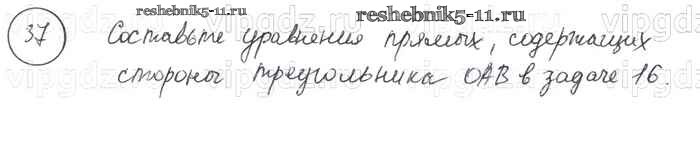 reshebnik5-11.ru
37 Составьте уравнения прямых, содержащих
стороны треугольника ОАВ в задаче 16.
reshebnik5-11.ru